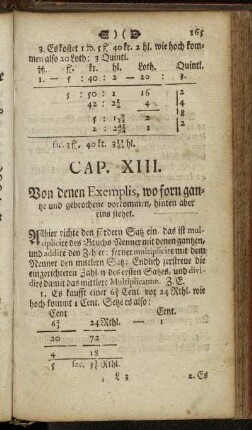 165
3. Es kostet 1 ℔. 5 fl. 40 kr. 2 hl. wie hoch kom-
men also 20 Loth: 3 Quintl.
℔. fl. kr. hl. Loth. Quintl.
1. — 5 : 40 : 2 — 20 : 3.
5 : 50 : 2 16 2
42 : 4 4
8
2
1
fac. 3 fl. 40 kr. hl.
CAP. XIII.
Von denen Exemplis, wo forn gan-
tze und gebrochene vorkommen, hinten aber
eins stehet.
Allhier richte den fordern Satz ein, das ist mul-
tiplicire des Bruchs Nenner mit denen gantzen,
und addire den Zehler: ferner multiplicire mit dem
Nenner den mittlern Satz: Endlich zerstreue die
eingerichteten Zahlen des ersten Satzes, und divi-
dire damit das mittlere Multiplicatum. Z. E.
1. Es kaufft einer 6⅔ Cent vor 24 Rthl. wie
hoch kommt 1 Cent. Setze es also:
Cent Cent.
6⅔ 24 Rthl. — 1
20 72
4 18
5 fac. 3 Rthl.
L 3 2. Es